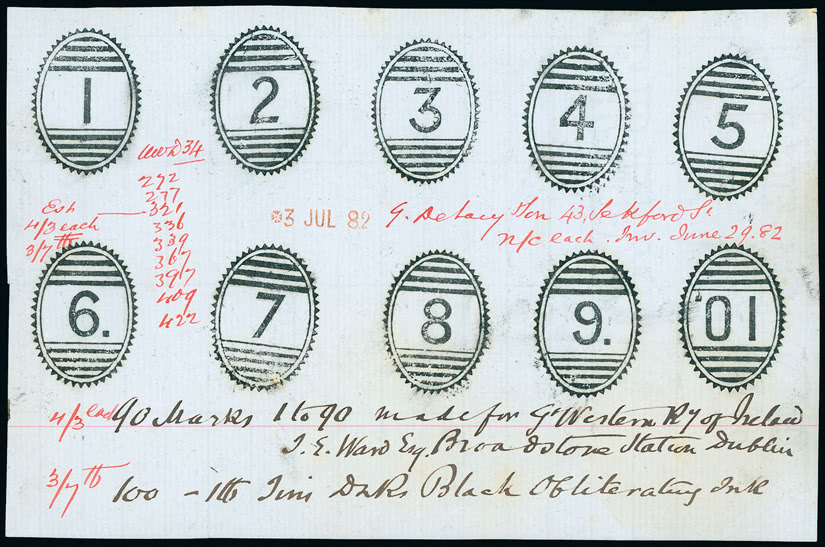 1 2 3 4 5
34
272
277
Est 321
4/3 each 336
3/7 tb 339
367
397
409
422
3 JUL 82
G. Delacy & Son 43, Sekford St
n/c each. Inv. June 29. 82
6. 7 8 9. '01
4/3 each 90 Marks 1 to 90 made for Gt Western Ry of Ireland
J. E. Ward Esq. Broadstone Station Dublin
3/7 tb 100 - 1tb Tins Black Obliterating Ink